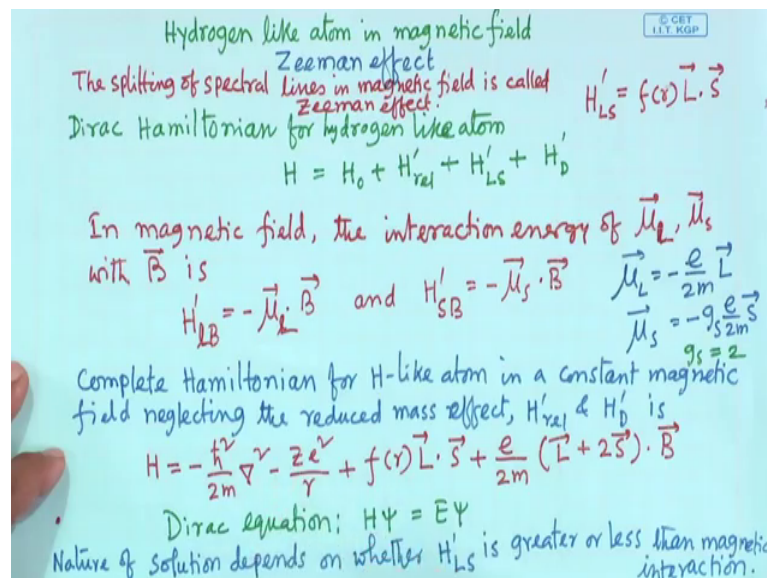 Hydrogen like atom in magnetic field
© CET
I.I.T. KGP
Zeeman effect
The splitting of spectral lines in magnetic field is called
Zeeman effect.
H'_LS = f(r) L⃗ . S⃗
Dirac Hamiltonian for hydrogen like atom
H = H₀ + H'_rel + H'_LS + H'_D
In magnetic field, the interaction energy of μ⃗_L, μ⃗_s
with B⃗ is
H'_LB = - μ⃗_L . B⃗ and H'_SB = - μ⃗_s . B⃗
μ⃗_L = - e/2m L⃗
μ⃗_s = - g_s e/2m S⃗
g_s = 2
Complete Hamiltonian for H-like atom in a constant magnetic
field neglecting the reduced mass effect, H'_rel & H'_D is
H = - ħ²/2m ∇² - Ze²/r + f(r) L⃗ . S⃗ + e/2m (L⃗ + 2S⃗) . B⃗
Dirac equation: Hψ = Eψ
Nature of solution depends on whether H'_LS is greater or less than magnetic
interaction.